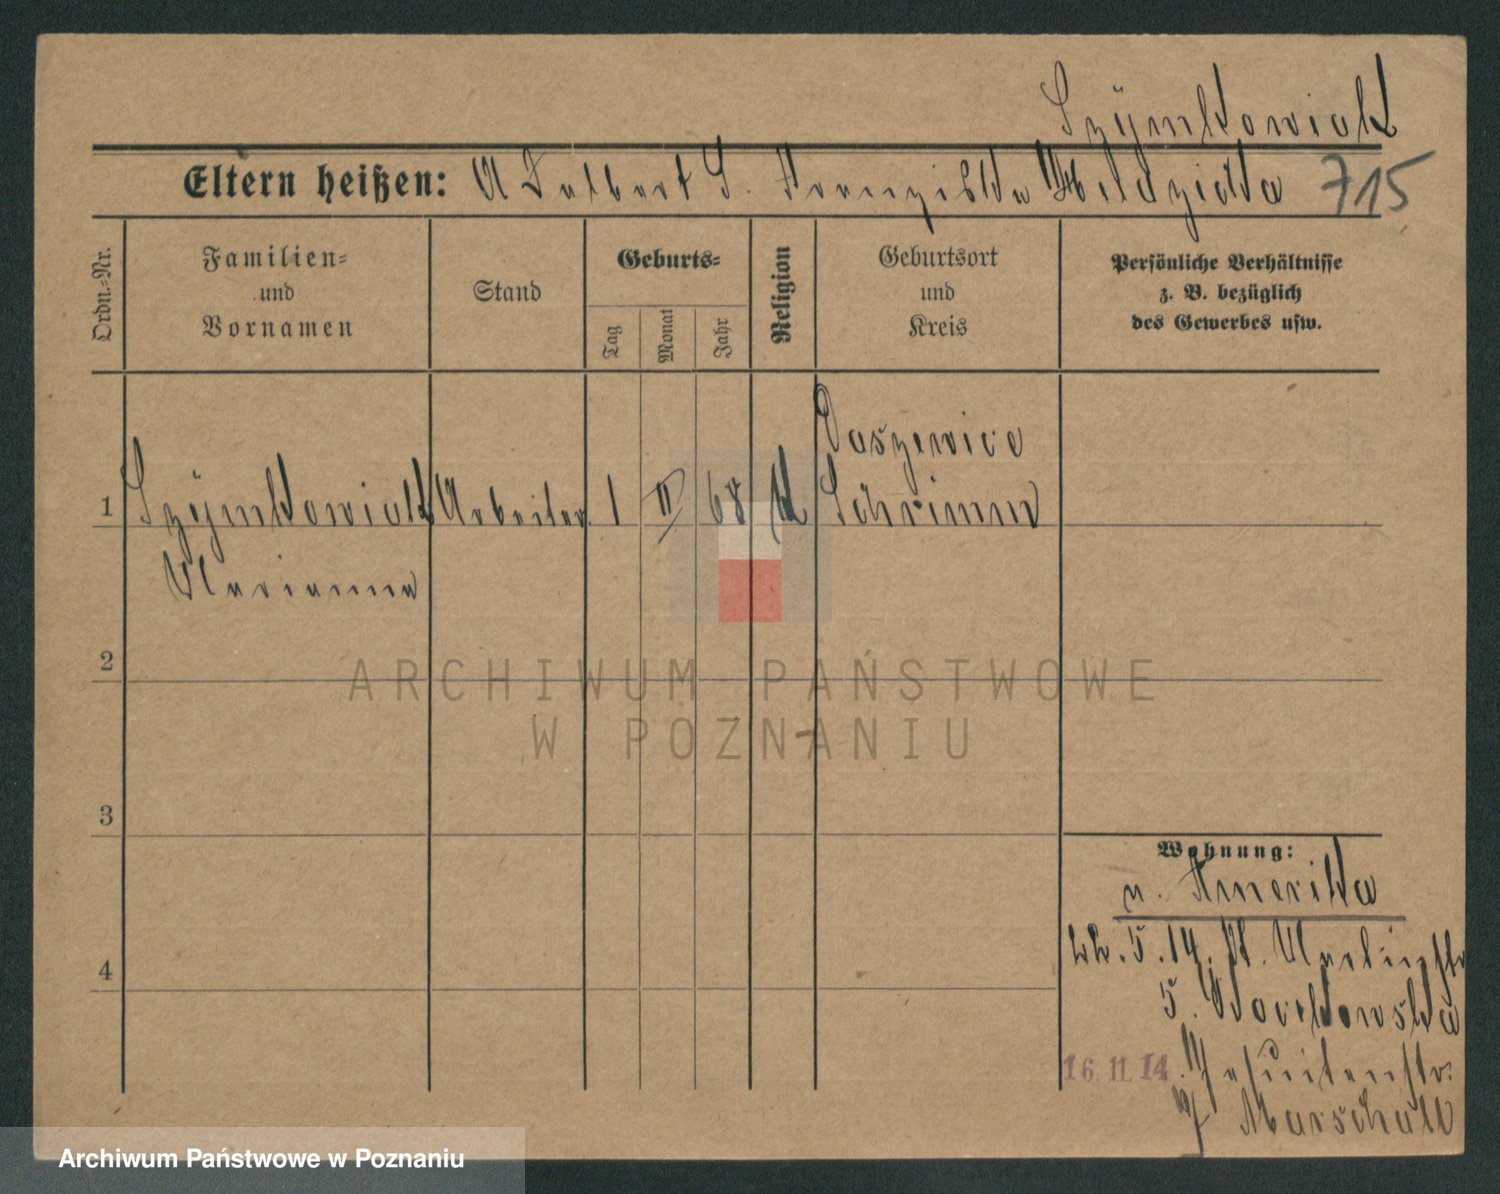 Szÿmkowiak
Eltern heißen: Adalbert S. Franziska
715
Ordn.-Nr.
Familien-
und
Vornamen
Stand
Geburts-
Tag
Monat
Jahr
Religion
Geburtsort
und
Kreis
Persönliche Verhältnisse
z. B. bezüglich
des Gewerbes usw.
Daszewice
1 Szÿmkowiak Arbeiter 1 II 68 k Schrimm
Marianna
2
3
4
Wohnung:
n. Amerika
5. 14. Pl.
5.
16. 11. 14. Jesuitenstr.
Marschall
ARCHIWUM PAŃSTWOWE
W POZNANIU
Archiwum Państwowe w Poznaniu